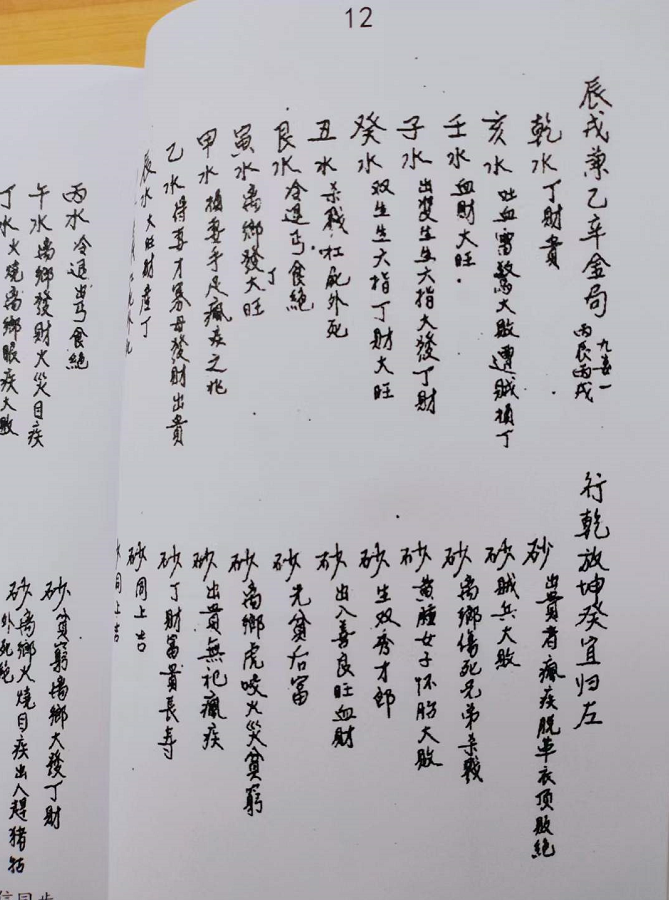 12
辰戌兼乙辛金局
丙辰丙戌
行乾放坤癸宜归左
乾水丁財貴
砂出貴者瘋疾脱革衣顶敗絕
亥水吐血雷驚大敗遭賊損丁
砂賊兵大敗
壬水血財大旺
砂离鄉傷死兄弟杀戮
子水出雙生生六指大發丁財
砂黄腫女子怀胎大敗
癸水双生生六指丁財大旺
砂生双秀才郎
丑水杀戮杠死外死
砂出入善良旺血財
艮水冷退丐食絕
砂先贫后富
寅水离鄉發大旺
丁
砂离鄉虎咬火災貧窮
甲水損妻手足瘋疾之
砂出貴無祀瘋疾
乙水得妻才寡母發財出貴
砂丁財富貴長寿
辰水大旺財產丁
砂同上吉
同上吉
丙水冷退出丐食絕
砂貧窮离鄉大發丁財
午水离鄉發財火災目疾
砂离鄉火燒目疾出人
外死絕
丁水火燒离鄉眼疾大敗